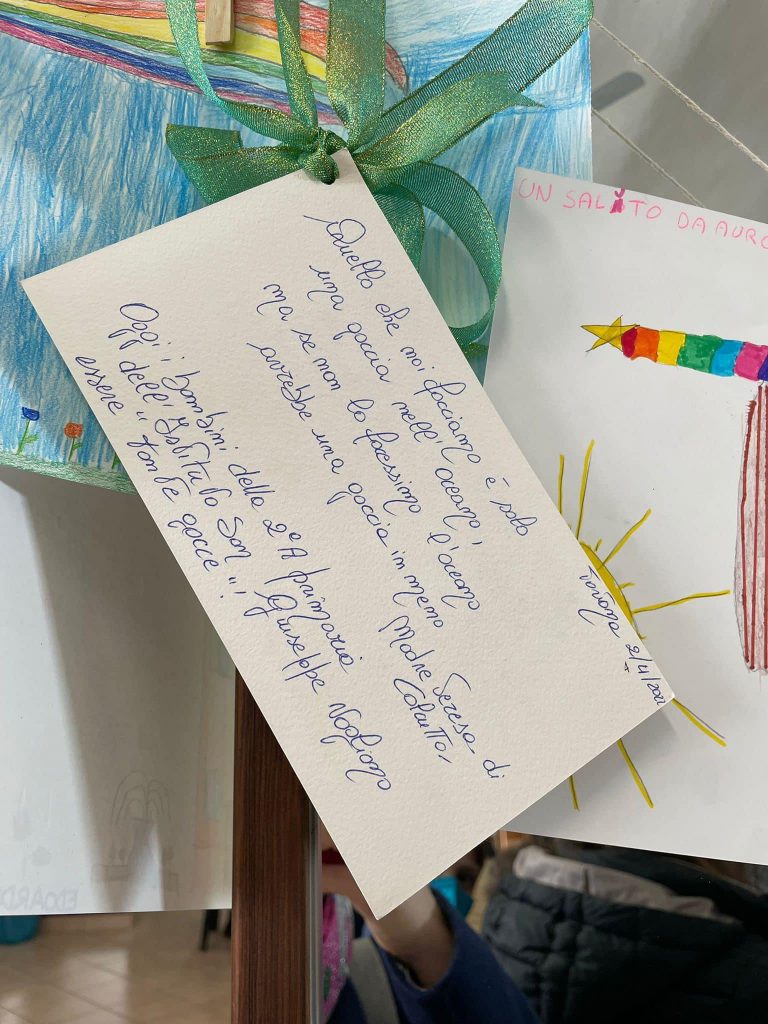 Quello che noi facciamo è solo
una goccia nell'oceano,
ma se non lo facessimo l'oceano
avrebbe una goccia in meno
Madre Teresa di
Calcutta.
Oggi i bambini della 2ªA primaria
dell'Istituto San Giuseppe vogliono
essere "tante gocce"!
2/4/2022
UN SALUTO DA AURO
EDOARD